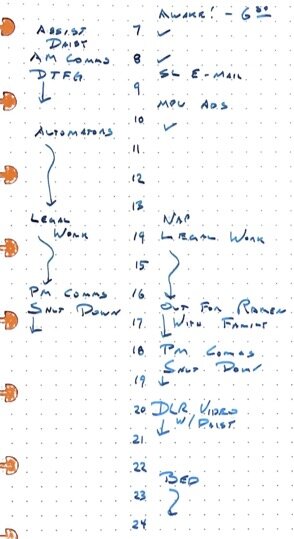 AWAKE! - 6:30
ASSIST 7 ✓
DAISY
AM COMMS 8 ✓
DTFG SL E-MAIL
9
MPU ADS
10 ✓
AUTOMATORS
11
12
13
LEGAL NAP
WORK 14 LEGAL WORK
15
PM COMMS 16
SHUT DOWN OUT FOR RAMEN
17 WITH FAMILY
18 PM COMMS
SHUT DOWN
19
20 DLR VIDEO
W/ DAISY
21
22
BED
23
24